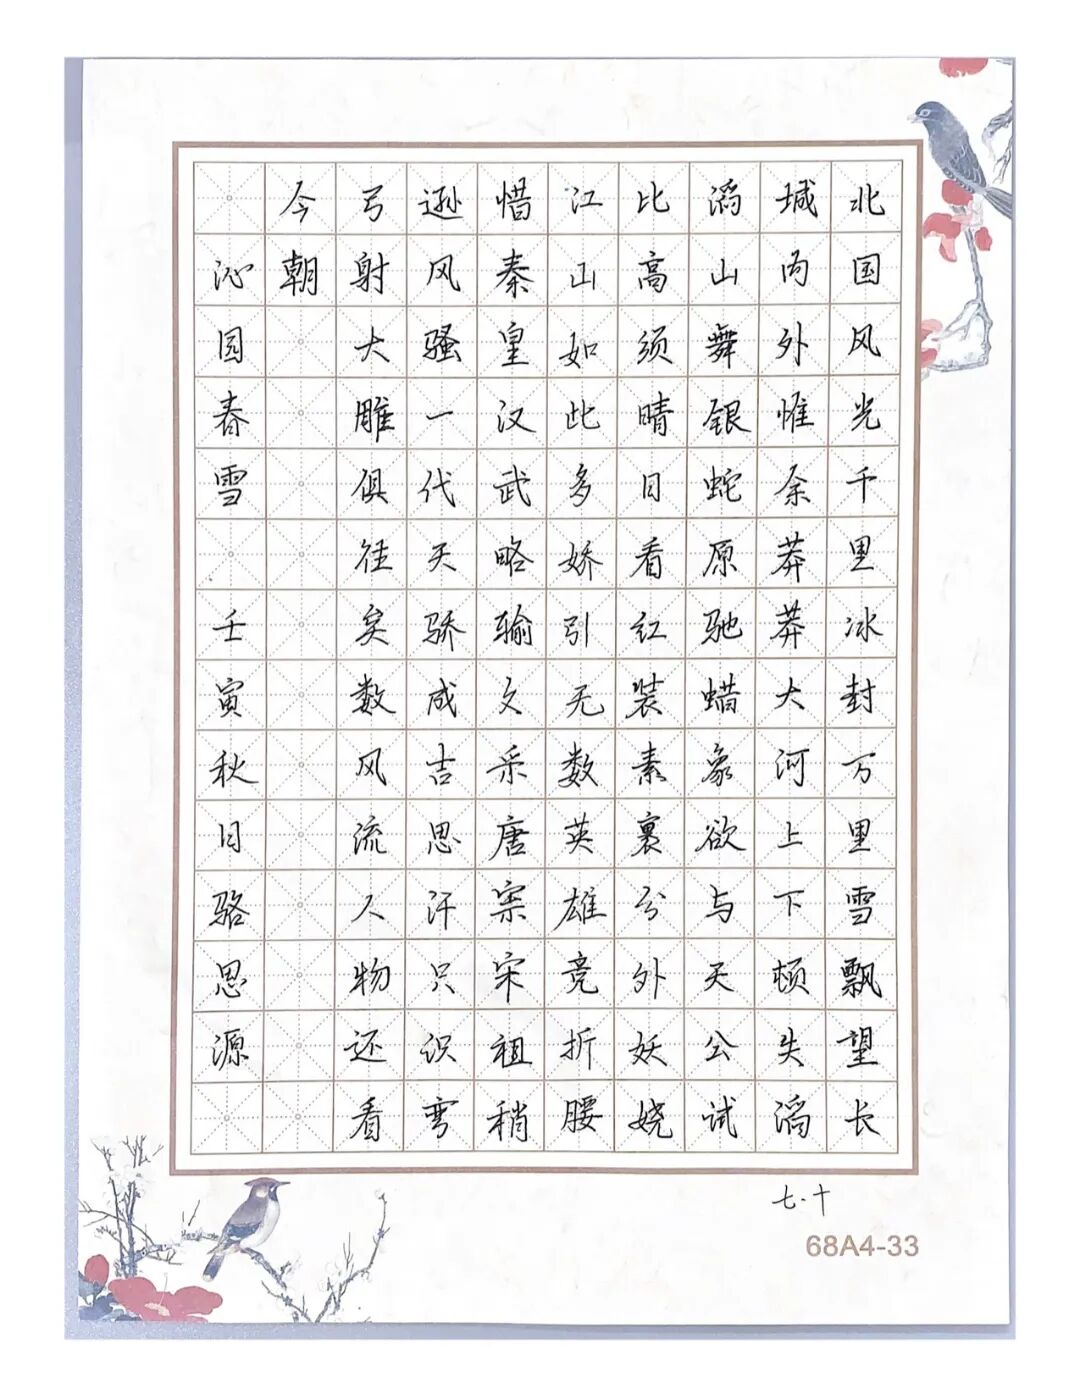 北国风光千里冰封万里雪飘望长
城内外惟余莽莽大河上下顿失滔
滔山舞银蛇原驰蜡象欲与天公试
比高须晴日看红装素裹分外妖娆
江山如此多娇引无数英雄竞折腰
惜秦皇汉武略输文采唐宗宋祖稍
逊风骚一代天骄成吉思汗只识弯
弓射大雕俱往矣数风流人物还看
今朝
沁园春雪 壬寅秋日骆思源
七·十
68A4-33